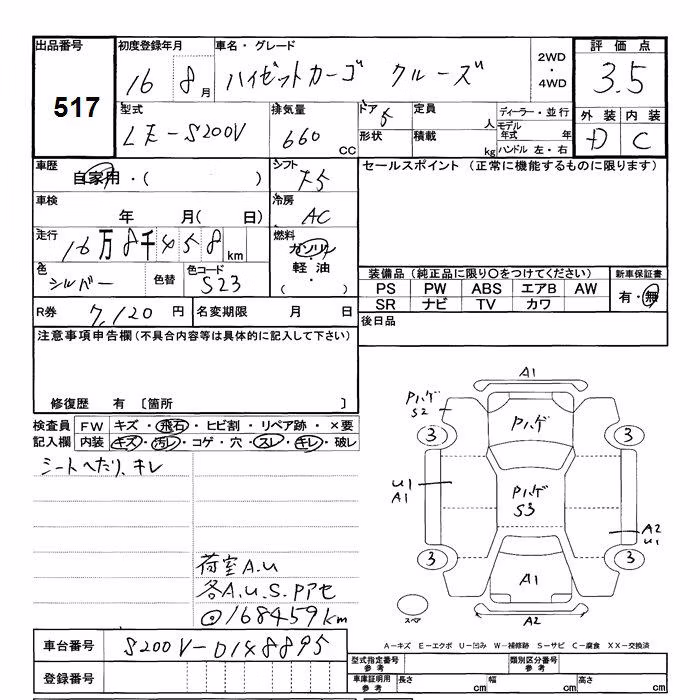 出品番号 初度登録年月 車名・グレード 2WD・4WD 評価点
517 16 8月 ハイゼットカーゴ クルーズ 3.5
型式 排気量 ドア 定員 ディーラー・並行 外装 内装
LE-S200V 660 CC 5 人 モデル年式 年 D C
形状 積載 kg ハンドル 左・右
車歴 シフト セールスポイント (正常に機能するものに限ります)
自家用・( ) F5
車検 冷房
年 月( 日) AC
走行 燃料
16万8千458km ガソリン・軽油・( )
色 色替 色コード 装備品 (純正品に限り○をつけてください) 新車保証書
シルバー S23 PS PW ABS エアB AW 有・無
SR ナビ TV カワ
R券 7,120円 名変期限 月 日 後日品
注意事項申告欄(不具合内容等は具体的に記入して下さい)
修復歴 有 〔箇所 〕
検査員 FW キズ・飛石・ヒビ割・リペア跡・×要
記入欄 内装 キズ・汚レ・コゲ・穴・スレ・キレ・破レ
シートへたり、キレ
荷室A.U
各A.U.S.Pアセ
@168459km
A1
Pハゲ
S2
Pハゲ
3 3
U1
A1
Pハゲ
S3
A2
U1
3 3
A1
スペア
A2
A-キズ E-エクボ U-凹み W-補修跡 S-サビ C-腐食 XX-交換済
車台番号 S200V-0148895
型式指定番号 参考 類別区分番号 参考
登録番号 車庫証明用 参考 長さ cm 幅 cm 高さ cm